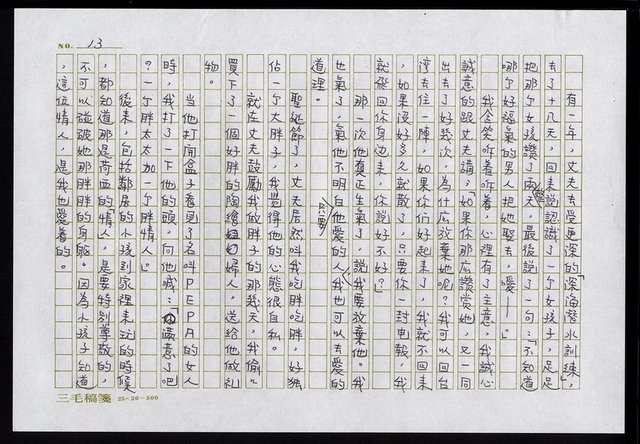 NO. 13
有一年，丈夫去受更深的「深海潛水訓練」，
去了十几天，回來說認識了一个女孩子，足足
把那个女孩讚了兩整天，最後說了一句：「不知道
哪个好福氣的男人把她娶去，噯——。」
我含笑听着听着，心裡有了主意，我誠心
誠意的跟丈夫講：「如果你那么讚賞她，又一同
出去了好幾次，為什么放棄她呢？我可以回台
湾去住一陣，如果你們好起來了，我就不回來
，如果沒好多久就散了，只要你一封电報，我
就飛回你身边來，你說好不好？」
那一次他真正生氣了，說我要放棄他。我
也氣了，氣他不明白只要他愛的人，我也可以去愛的
道理。
聖誕節了，丈夫居然叫我吃胖吃胖，好独
佔一个大胖子，我覺得他的心態很自私。
就在丈夫鼓勵我做胖子的那幾天，我偷偷
買下了一個好胖的陶燒婦人，送給他做礼
物。
當他打開盒子看見了名叫PEPA的女人
時，我打了一下他的頭，向他喊：「滿意了吧
？一个胖太太加一个胖情人。」
後來，包括鄰居的小孩到家裡來玩的時候
，都知道那是荷西的情人，是要特別尊敬的，
不可以碰破她那胖胖的身軀。因為小孩子知道
，這位情人，是我也愛着的。
三毛稿箋 25×20＝500